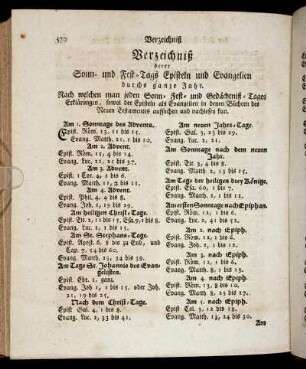 370 Verzeichniß
Verzeichniß
derer
Sonn- und Fest-Tags Episteln und Evangelien
durchs ganze Jahr.
Nach welchen man jeden Sonn- Fest- und Gedächtniß-Tages
Erklärungen, sowol der Episteln als Evangelien in denen Büchern des
Neuen Testamentes aufsuchen und nachlesen kan.
Am 1. Sonntage des Advents.
Epist. Röm. 13, 11 bis 15.
Evang. Matth. 21, 1 bis 10.
Am 2. Advent.
Epist. Röm. 15, 4 bis 14.
Evang. Luc. 21, 25 bis
Am 3. Advent.
Epist. 1 Cor. 4, 1 bis 6.
Evang. Matth. 11, 2 bis 11.
Am 4. Advent.
Epist. Phil. 4, 4 bis 8.
Evang. Joh. 1, 19 bis 29.
Am heiligen Christ-Tage.
Epist. Tit. 2, 11 bis Es. 9, 2 bis 8.
Evang. Luc. 2, 1 bis 15.
Am St. Stephans-Tage.
Epist. Apost. 6, 8 bis zu End, und
Cap. 7, 54 bis 60.
Evang. Matth. 23, 34 bis 39.
Am Tage St. Johannis des Evan-
gelisten.
Epist. Ebr. 1. ganz.
Evang. Joh. 1, 1 bis 15. oder Joh.
21, 19 bis 25.
Nach dem Christ-Tage.
Evang. Luc. 2, 33 bis 41.
Am neuen Jahrs-Tage.
Epist. Gal. 3, 23 bis 29.
Evang. Luc. 2, 21.
Am Sonntage nach dem neuen
Jahr.
Epist. Tit. 3, 4 bis 8.
Evang. Matth. 2, 13 bis
Am Tage der heiligen drey Könige.
Epist. Esa. 60, 1 bis 7.
Evang. Matth. 2, 1 bis 12.
Am ersten Sonntage nach Epiphan.
Epist. Röm. 12, 1 bis 6.
Evang. Luc. 2, 41 bis 52.
Am 2. nach Epiph.
Epist. Röm. 12,
Evang. Joh. 2, 1 bis 12.
Am 3. nach Epiph.
Epist. Röm. 12,
Evang. Matth. 8, 1 bis 13.
Am 4. nach Epiph.
Epist. Röm. 13, 8 bis 10.
Evang. Matth. 8, 23 bis
Am 5. nach Epiph.
Epist. Col. 3, 12 bis 18.
Evang. Matth. 13, 24 bis 30.
Am